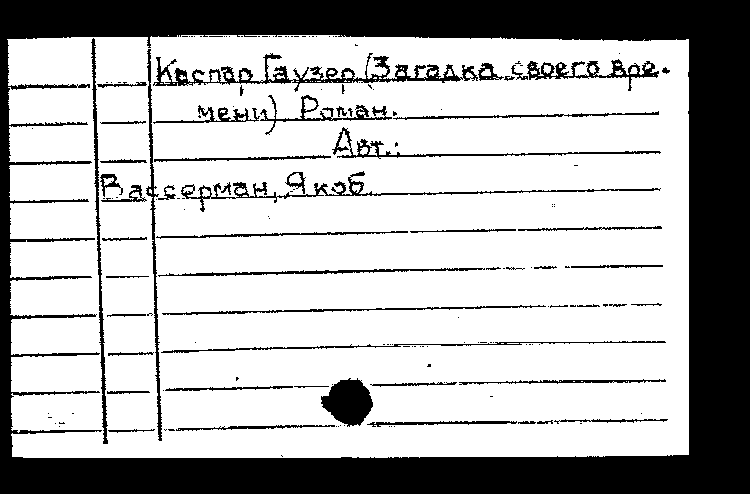 Каспар Гаузер (Загадка своего вре-
мени) Роман.
Авт.:
Вассерман, Якоб